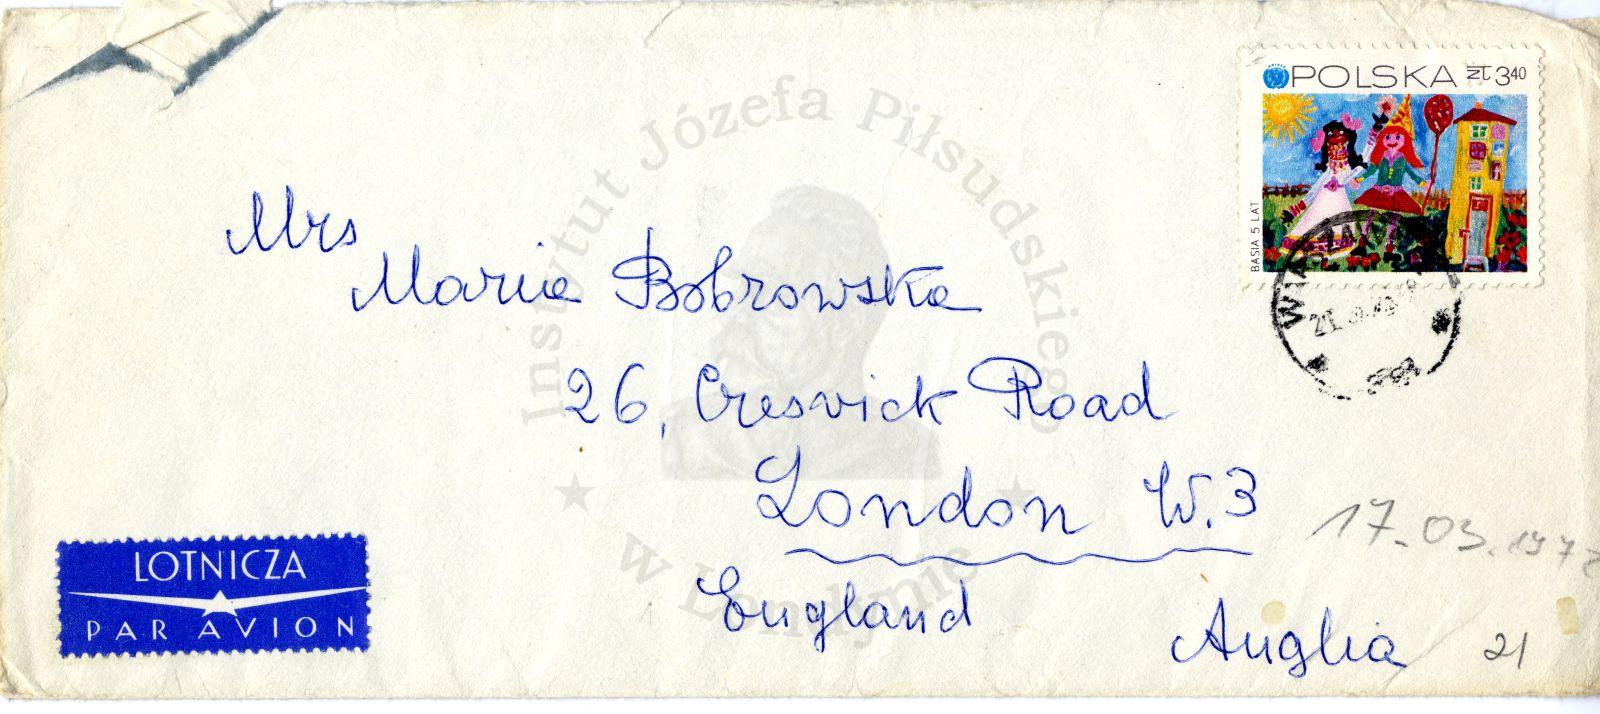 POLSKA ZŁ 3 40
BASIA 5 LAT
Instytut Józefa Piłsudskiego
w Londynie
Mrs
Maria Bobrowska
26, Cresvick Road
London W.3
England
Anglia
17.03.197
21
LOTNICZA
PAR AVION